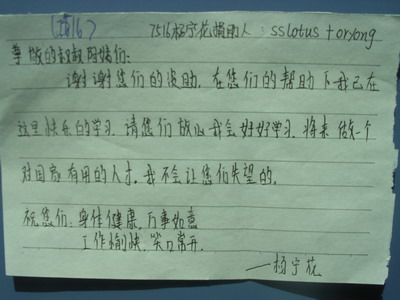 (7516) 7516杨宁花捐助人:sslotus + oryong
尊敬的叔叔阿姨们:
谢谢您们的资助,在您们的帮助下我已在
这里快乐的学习,请您们放心我会好好学习,将来做一个
对国家有用的人才,我不会让您们失望的。
祝您们:身体健康,万事如意
工作愉快,笑口常开。
——杨宁花